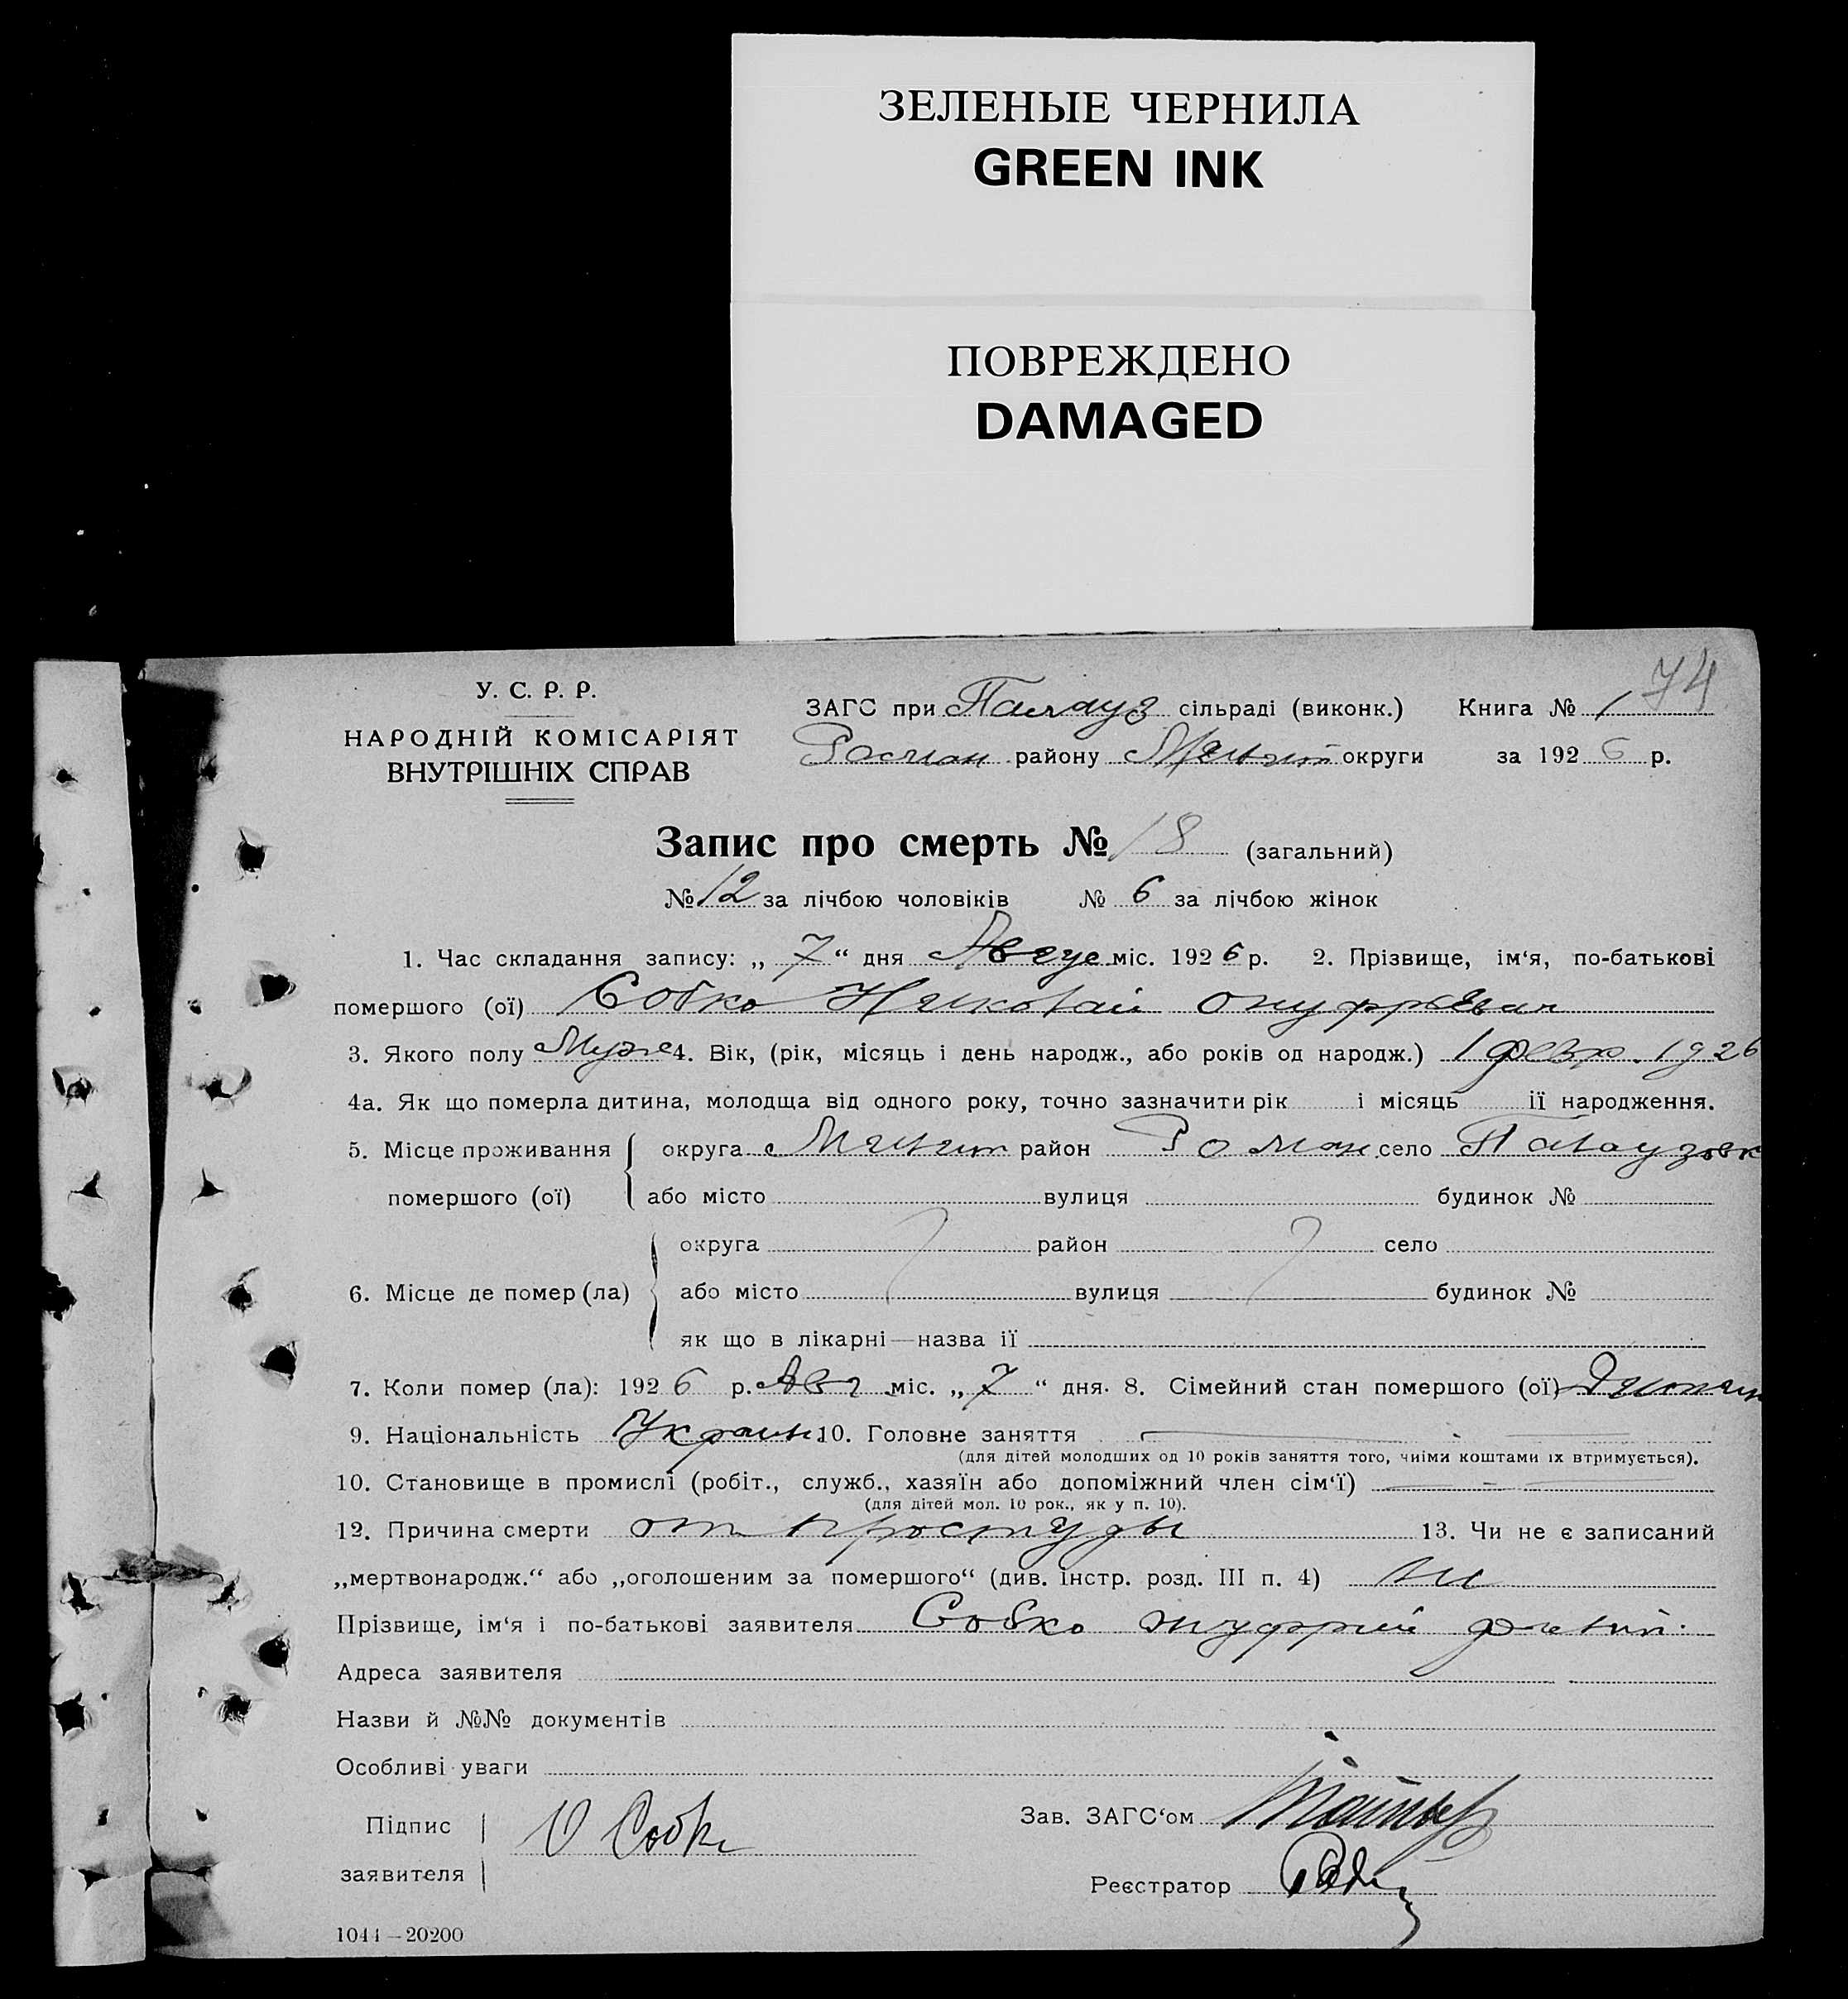 ЗЕЛЕНЫЕ ЧЕРНИЛА
GREEN INK
ПОВРЕЖДЕНО
DAMAGED
74
У. С. Р. Р.
НАРОДНІЙ КОМІСАРІЯТ
ВНУТРІШНІХ СПРАВ
ЗАГС при Палауз сільраді (виконк.) Книга № 1
району округи за 1926 р.
Запис про смерть № 18 (загальний)
№ 12 за лічбою чоловіків № 6 за лічбою жінок
1. Час складання запису: „ 7 “ дня Авгус міс. 1926 р. 2. Прізвище, ім‘я, по-батькові
помершого (ої) Собко Николай Онуфрьевич
3. Якого полу Муж 4. Вік, (рік, місяць і день народж., або років од народж.) 1 февр. 1926
4а. Як що померла дитина, молодща від одного року, точно зазначити рік і місяць її народження.
5. Місце проживання округа район Роман село Палаузовк
помершого (ої) або місто вулиця будинок №
округа район село
6. Місце де помер (ла) або місто вулиця будинок №
як що в лікарні—назва її
7. Коли помер (ла): 1926 р. Авг міс. „ 7 “ дня. 8. Сімейний стан помершого (ої)
9. Національність Украин 10. Головне заняття
(для дітей молодших од 10 років заняття того, чиїми коштами їх втримується).
10. Становище в промислі (робіт., служб., хазяїн або допоміжний член сім‘ї)
(для дітей мол. 10 рок., як у п. 10).
12. Причина смерти от простуды 13. Чи не є записаний
„мертвонародж.“ або „оголошеним за помершого“ (див. інстр. розд. III п. 4)
Прізвище, ім‘я і по-батькові заявителя Собко Онуфрий
Адреса заявителя
Назви й №№ документів
Особливі уваги
Підпис О Собко Зав. ЗАГС‘ом
заявителя
Реєстратор
1044—20200